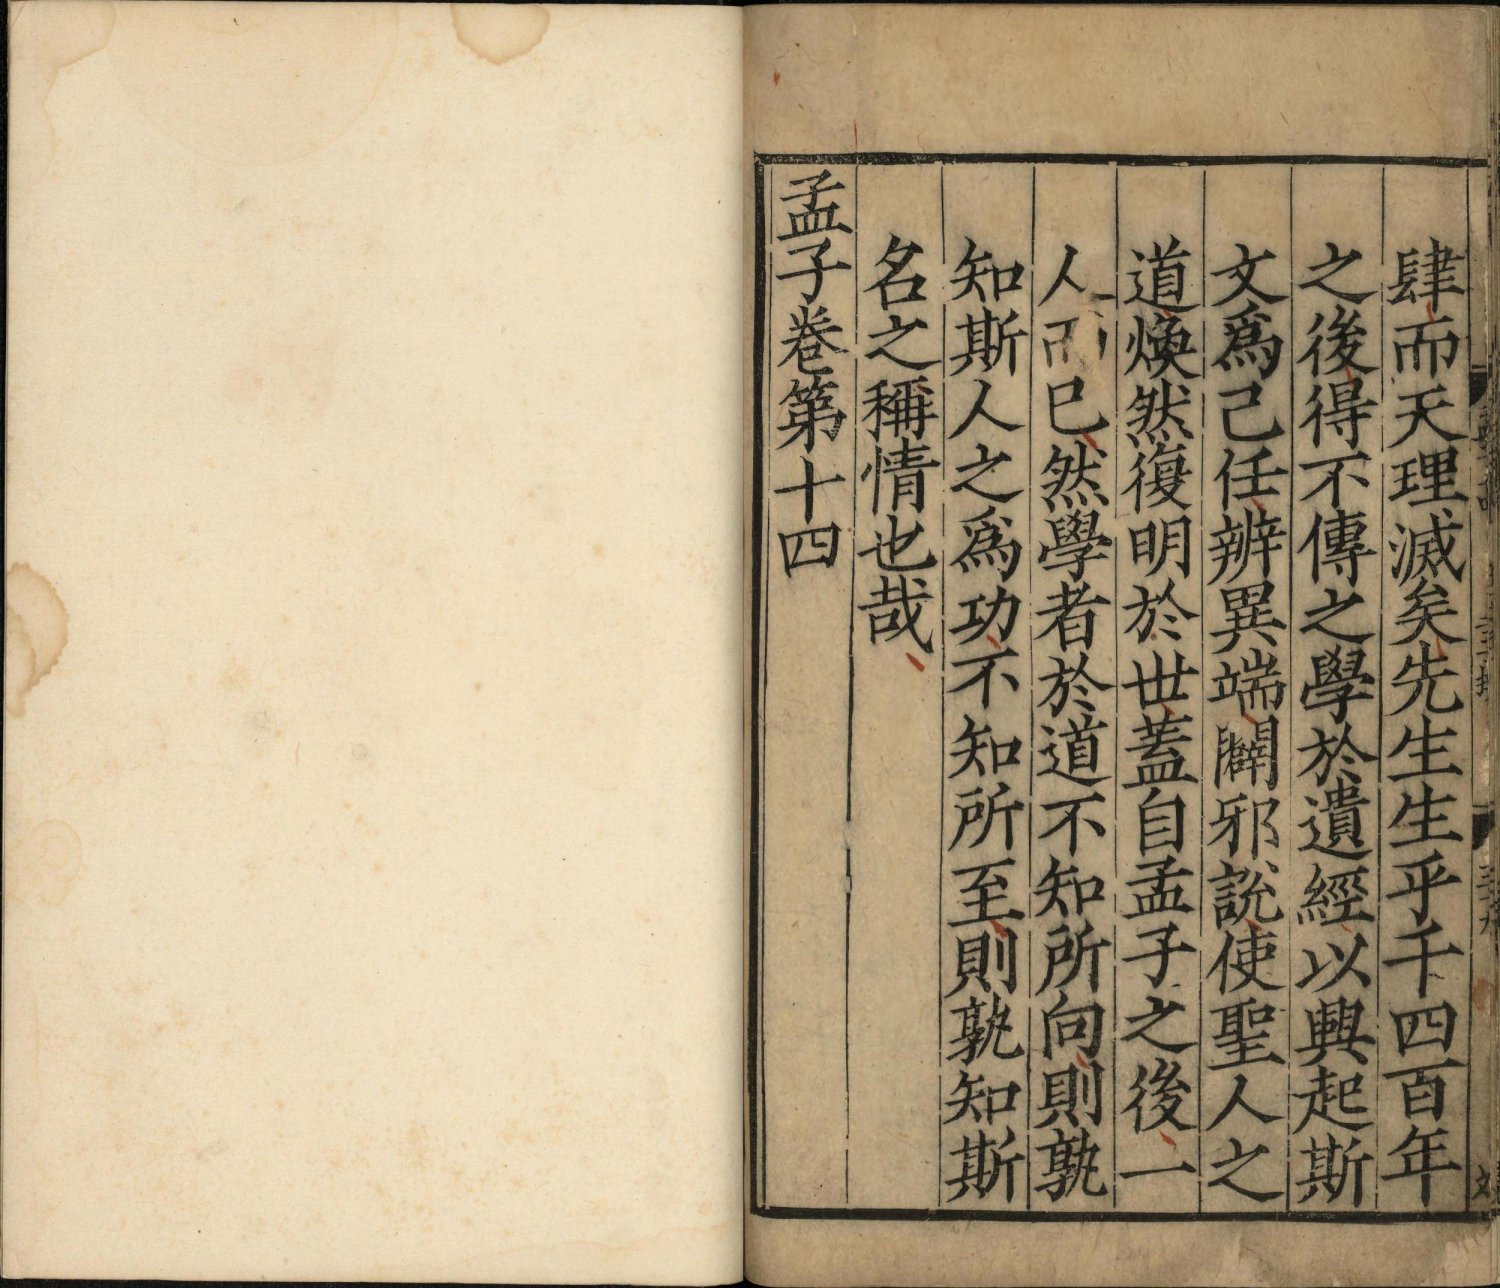 肆而天理滅矣先生生乎千四百年
之後得不傳之學於遺經以興起斯
文爲己任辨異端闢邪說使聖人之
道煥然復明於世蓋自孟子之後一
人而已然學者於道不知所向則孰
知斯人之爲功不知所至則孰知斯
名之稱情也哉
孟子卷第十四